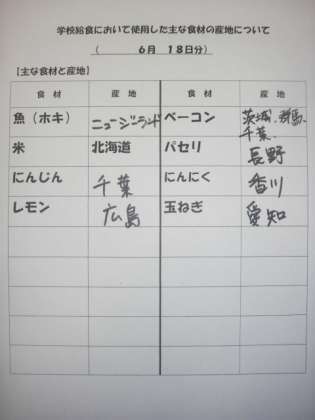 学校給食において使用した主な食材の産地について
（　　　６月　１８日分）
【主な食材と産地】
食　材　産　地　食　材　産　地
魚（ホキ）　ニュージーランド　ベーコン　茨城、群馬、
千葉、
米　北海道　パセリ　長野
にんじん　千葉　にんにく　香川
レモン　広島　玉ねぎ　愛知